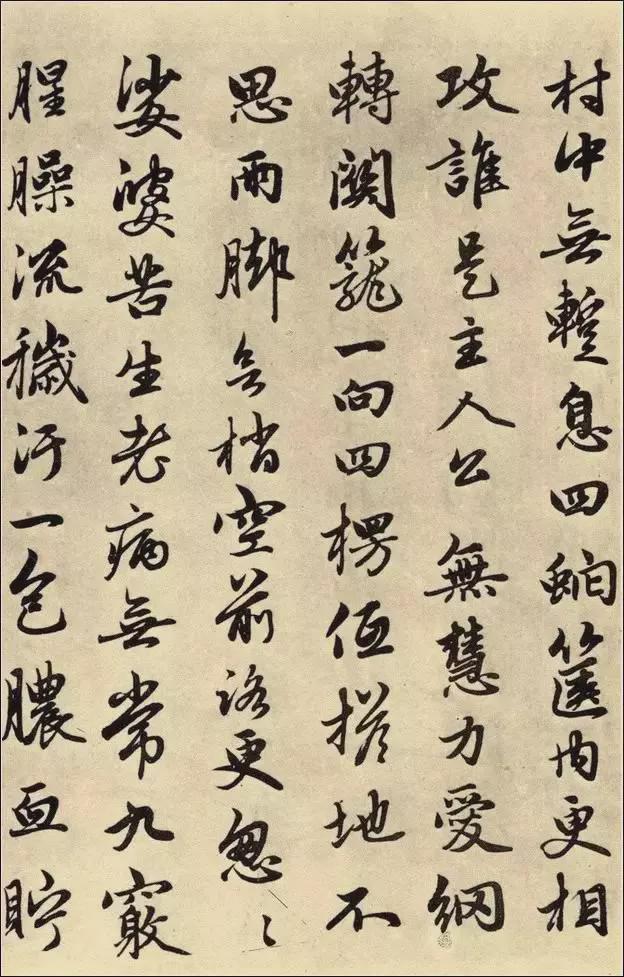 村中無蹔息四虵篋内更相
攻誰是主人公無慧力愛網
轉關籠一向四楞低搭地不
思兩脚無梢空前路更忽〻
娑婆苦生老病無常九竅
腥臊流穢汙一包膿血貯